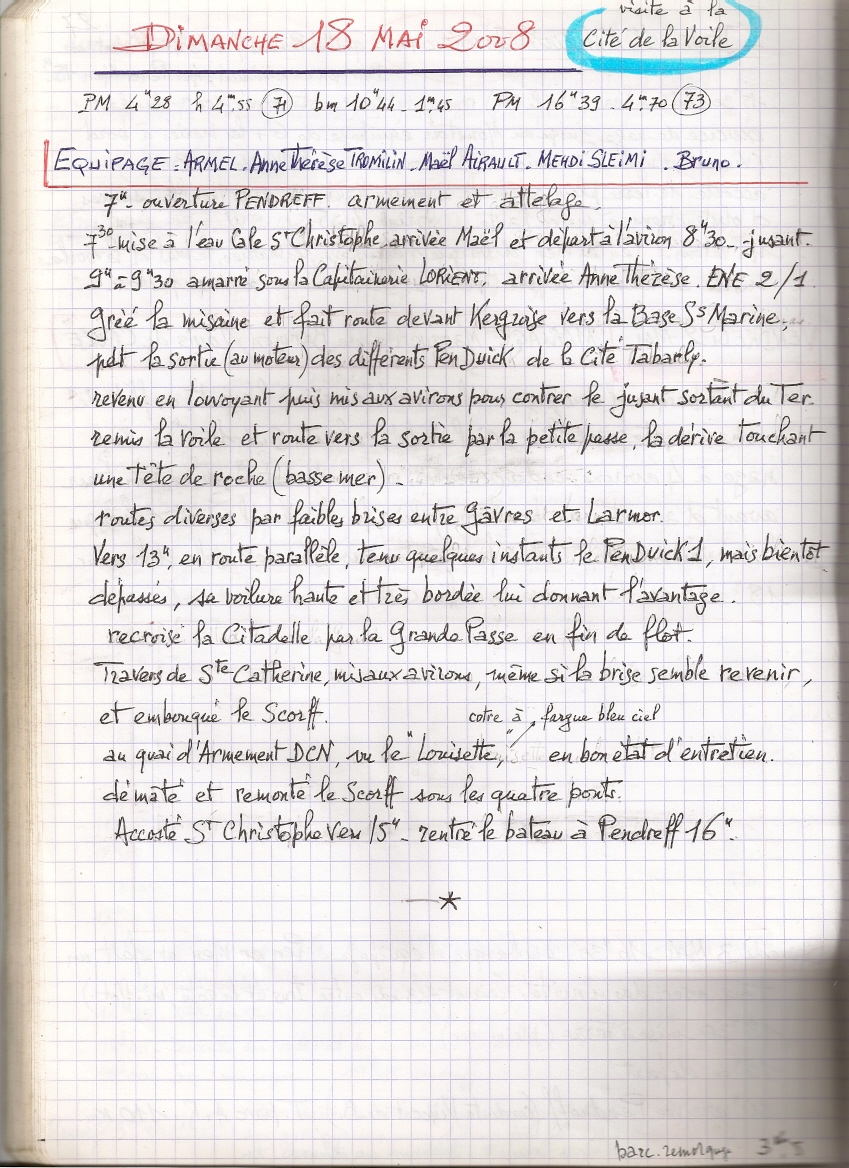 visite à la
Cité de la Voile
DIMANCHE 18 MAI 2008
PM 4H28 h 4m55 (71) bm 10H44 - 1m45 PM 16H39 - 4m70 (73)
EQUIPAGE : ARMEL. Anne Thérèse TROMILIN. Maël AIRAULT. MEHDI SLEIMI. Bruno.
7H - ouverture PENDREFF. armement et attelage.
7 30 - mise à l'eau Cale St Christophe, arrivée Maël et départ à l'aviron 8H30 - jusant.
9H à 9H30 amarré sous la Capitainerie LORIENT, arrivée Anne Thérèse. ENE 2/1
gréé la misaine et fait route devant Kergroise vers la Base Ss Marine,
pdt la sortie (au moteur) des différents Pen Duick de la Cité Tabarly.
revenu en louvoyant puis mis aux avirons pour contrer le jusant sortant du Ter.
remis la voile et route vers la sortie par la petite passe, la dérive touchant
une tête de roche (basse mer) -
routes diverses par faibles brises entre Gâvres et Larmor.
Vers 13H, en route parallèle, tenu quelques instants le Pen Duick 1, mais bientôt
dépassés, sa voilure haute et très bordée lui donnant l'avantage.
recroisé la Citadelle par la Grande Passe en fin de flot.
Travers de Ste Catherine, mis aux avirons, même si la brise semble revenir,
et embouqué le Scorff.
cotre à fargue bleu ciel
au quai d'Armement DCN, vu le "Louisette", en bon état d'entretien.
démâté et remonté le Scorff sous les quatre ponts.
Accosté St Christophe Vers 15H - rentré le bateau à Pendreff 16H.
barc. remorquage